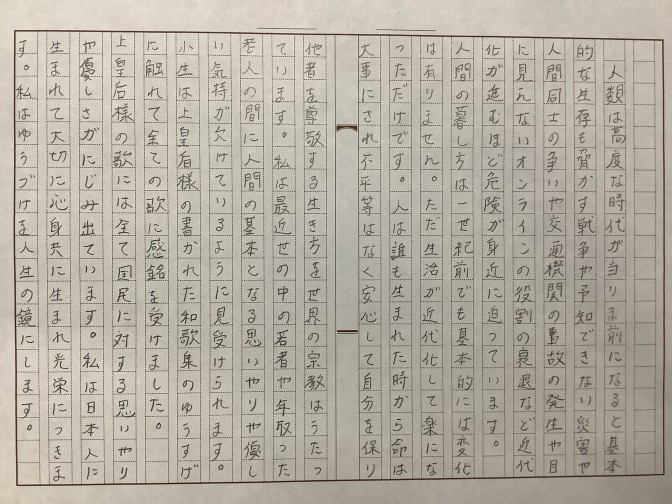 人類は高度な時代が当り前になると基本
的な生存も脅かす戦争や予知できない災害や
人間同士の争いや交通機関の事故の発生や目
に見えないオンラインの役割の衰退など近代
化が進むほど危険が身近に迫っています。
人間の暮し方は一世紀前でも基本的には変化
は有りません。ただ生活が近代化して楽にな
っただけです。人は誰も生まれた時から命は
大事にされ不平等はなく安心して自分を保り
他者を尊敬する生き方をせ世界の宗教はうたっ
ています。私は最近世の中の若者や年取った
老人の間に人間の基本となる思いやりや優し
い気持が欠けているように見受けられます。
小生は上皇后様の書かれた和歌集のゆうすげ
に触れて全ての歌に感銘を受けました。
上皇后様の歌には全て国民に対する思いやり
や優しさがにじみ出ています。私は日本人に
生まれて大切に心身共に生まれ光栄につきま
す。私はゆうづけを人生の鏡にします。